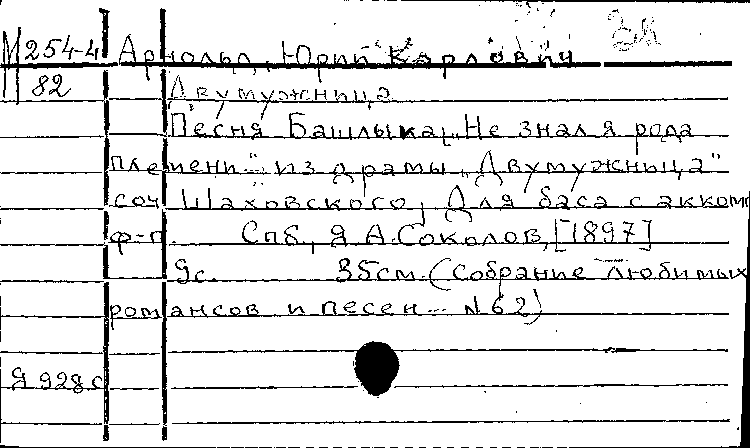 Зк
М 254-4 Арнольд, Юрий Карлович
82 Двумужница
Песня Башлыка „Не знал я рода
племени" из драмы „Двумужница"
соч. Шаховского, Для баса с акком
ф-п. Спб, Я А. Соколов, [1897]
9с. 35см. (Собрание любимых
романсов и песен... N 62)
Я 928с